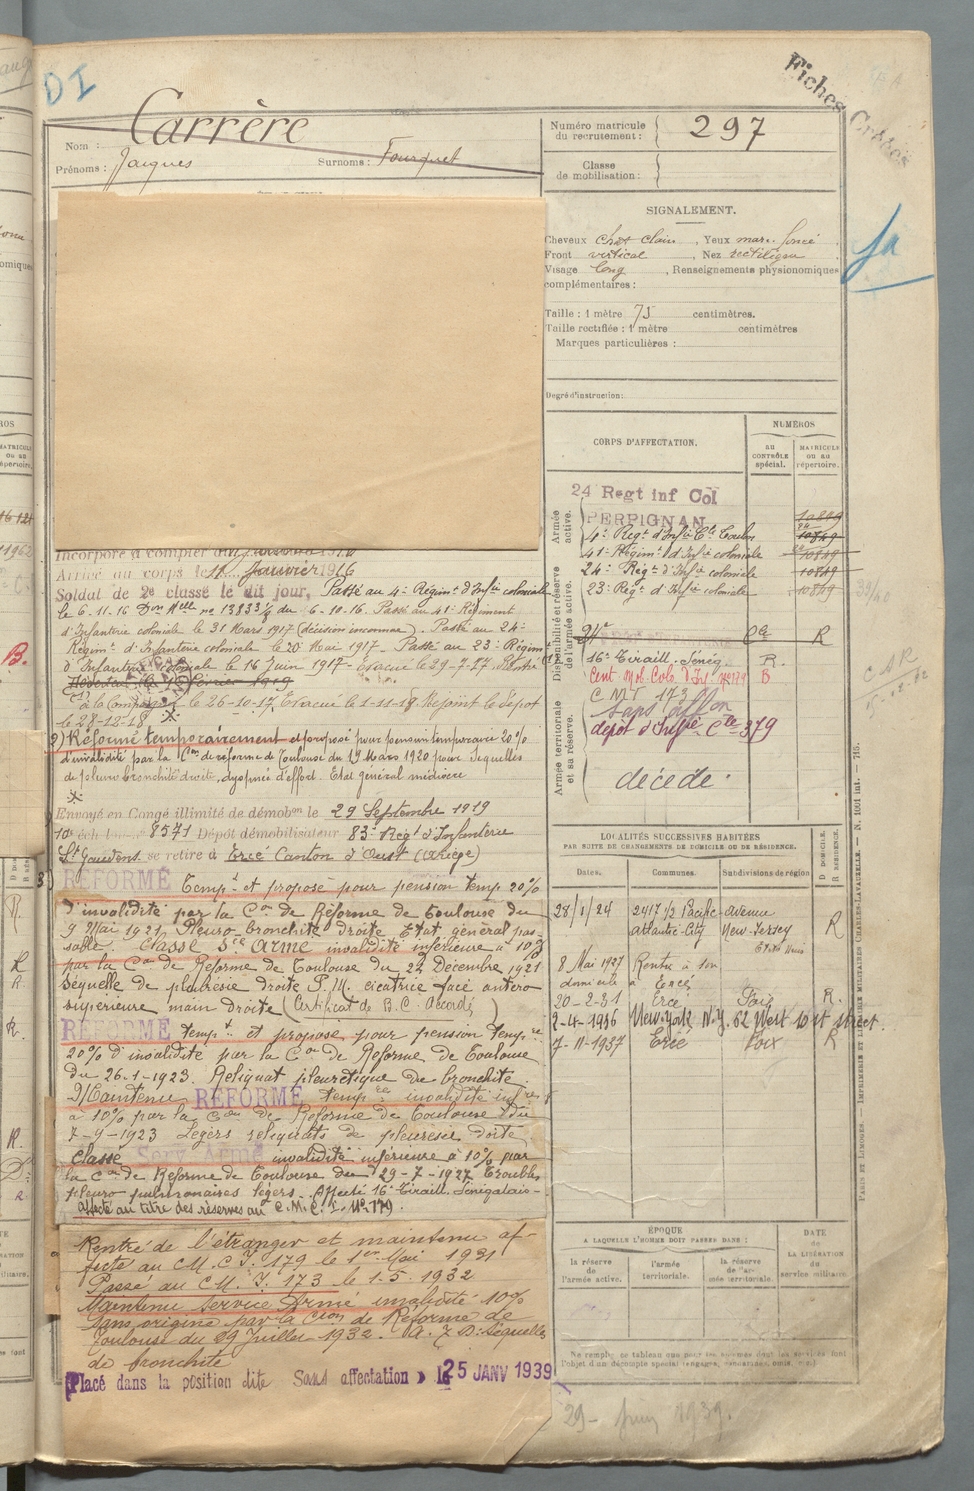 DI
Fiches Créées
Nom : Carrère
Prénoms : Jacques Surnoms : Fourquet
Numéro matricule du recrutement : 297
Classe de mobilisation :
SIGNALEMENT.
Cheveux chât clair, Yeux mar. foncé
Front vertical, Nez rectiligne
Visage long, Renseignements physionomiques
complémentaires :
Taille : 1 mètre 75 centimètres.
Taille rectifiée : 1 mètre centimètres
Marques particulières :
Degré d'instruction :
CORPS D'AFFECTATION.
NUMÉROS
AU CONTRÔLE spécial.
MATRICULE OU AU répertoire.
Armée active.
24 Regt inf Col
PERPIGNAN
4e Regt d'Infie Cle Toulon 10849
41e Régimt d'Infie coloniale 10849
24e Regt d'Infie coloniale 10849
23e Regt d'Infie coloniale 10849
Disponibilité et réserve de l'armée active.
16e Tiraill. Sénég. R.
Cent. Mob. Colo. d'Inf. No 179 B
C M I 173
Sans affon
dépôt d'Inffie Cte 379
Armée territoriale et sa réserve.
décédé.
Incorporé à compter du
Arrivé au corps le 11 Janvier 1916
Soldat de 2e classe le dit jour, Passé au 4e Régimt d'Infie coloniale
le 6.11.16 Don Mlle no 13833 1/8 du 6-10-16. Passé au 41e Régiment
d'Infanterie coloniale le 31 Mars 1917 (décision inconnue). Passé au 24e
Régimt d'Infanterie coloniale le 20 Mai 1917 - Passé au 23e Régimt
d'Infanterie coloniale le 16 Juin 1917 - Evacué le 29-7-17 Rentré
à la Compagnie le 26-10-17. Evacué le 1-11-18. Rejoint le dépôt
le 28-12-18
2) Réformé temporairement et proposé pour pension temporaire 20%
d'invalidité par la Con de réforme de Toulouse du 19 Mars 1920 pour Sequelles
de pleuro bronchite droite, dyspnée d'effort. Etat général médiocre
Envoyé en Congé illimité de démobon le 29 Septembre 1919
10e échelon no 8571 Dépôt démobilisateur 83e Regt d'Infanterie
St Gaudens se retire à Ercé Canton d'Oust (Ariège)
3) RÉFORMÉ Tempt et proposé pour pension temp 20%
d'invalidité par la Con de Réforme de Toulouse du
9 Mai 1921, Pleuro-bronchite droite Etat général pas-
sable. Classé Sce Armé invalidité inférieure à 10%
par la Con de Réforme de Toulouse du 22 Décembre 1921
Séquelle de pleurésie droite P.M. cicatrice face antéro
supérieure main droite (Certificat de B.C. Accordé)
RÉFORMÉ tempt et proposé pour pension tempre
20% d'invalidité par la Con de Réforme de Toulouse
du 26-1-1923. Reliquat pleurétique de bronchite.
Maintenu RÉFORMÉ tempre invalidité infre
à 10% par la Con de Réforme de Toulouse du
7-9-1923 Légers reliquats de pleurésie droite
Classé Serv. Armé invalidité inférieure à 10% par
la Con de Réforme de Toulouse du 29-7-1927 Troubles
pleuro pulmonaires légers. Affecté 16e Tiraill. Sénégalais-
affecté au titre des réserves au C.M.C.I. No 179.
Rentré de l'étranger et maintenu af-
fecté au C.M.C.I. 179 le 1er Mai 1931
Passé au C M. I. 173 le 1.5.1932
Maintenu service Armé invalidité 10%
sans origine par la Cion de Réforme de
Toulouse du 29 Juillet 1932. Séquelles
de bronchite
Placé dans la position dite Sans affectation le 25 JANV 1939
LOCALITÉS SUCCESSIVES HABITÉES
PAR SUITE DE CHANGEMENTS DE DOMICILE OU DE RÉSIDENCE.
Dates. Communes. Subdivisions de région D DOMICILE. R RÉSIDENCE.
28/1/24 2417 1/2 Pacific-avenue
atlantic-City New-Jersey R
Etats Unis
8 Mai 1927 Rentré à son
domicile à Ercé
20-2-31 Ercé Foix R.
2-4-1936 New-York N-Y. 62 West 10 st street.
7-11-1937 Ercé Foix R
ÉPOQUE
A LAQUELLE L'HOMME DOIT PASSER DANS :
la réserve de l'armée active.
l'armée territoriale.
la réserve de l'armée territoriale.
DATE de LA LIBÉRATION du service militaire.
29- Juin 1939.
PARIS ET LIMOGES. — IMPRIMERIE ET LIBRAIRIE MILITAIRES CHARLES-LAVAUZELLE. — N. 1001 int. — 715.